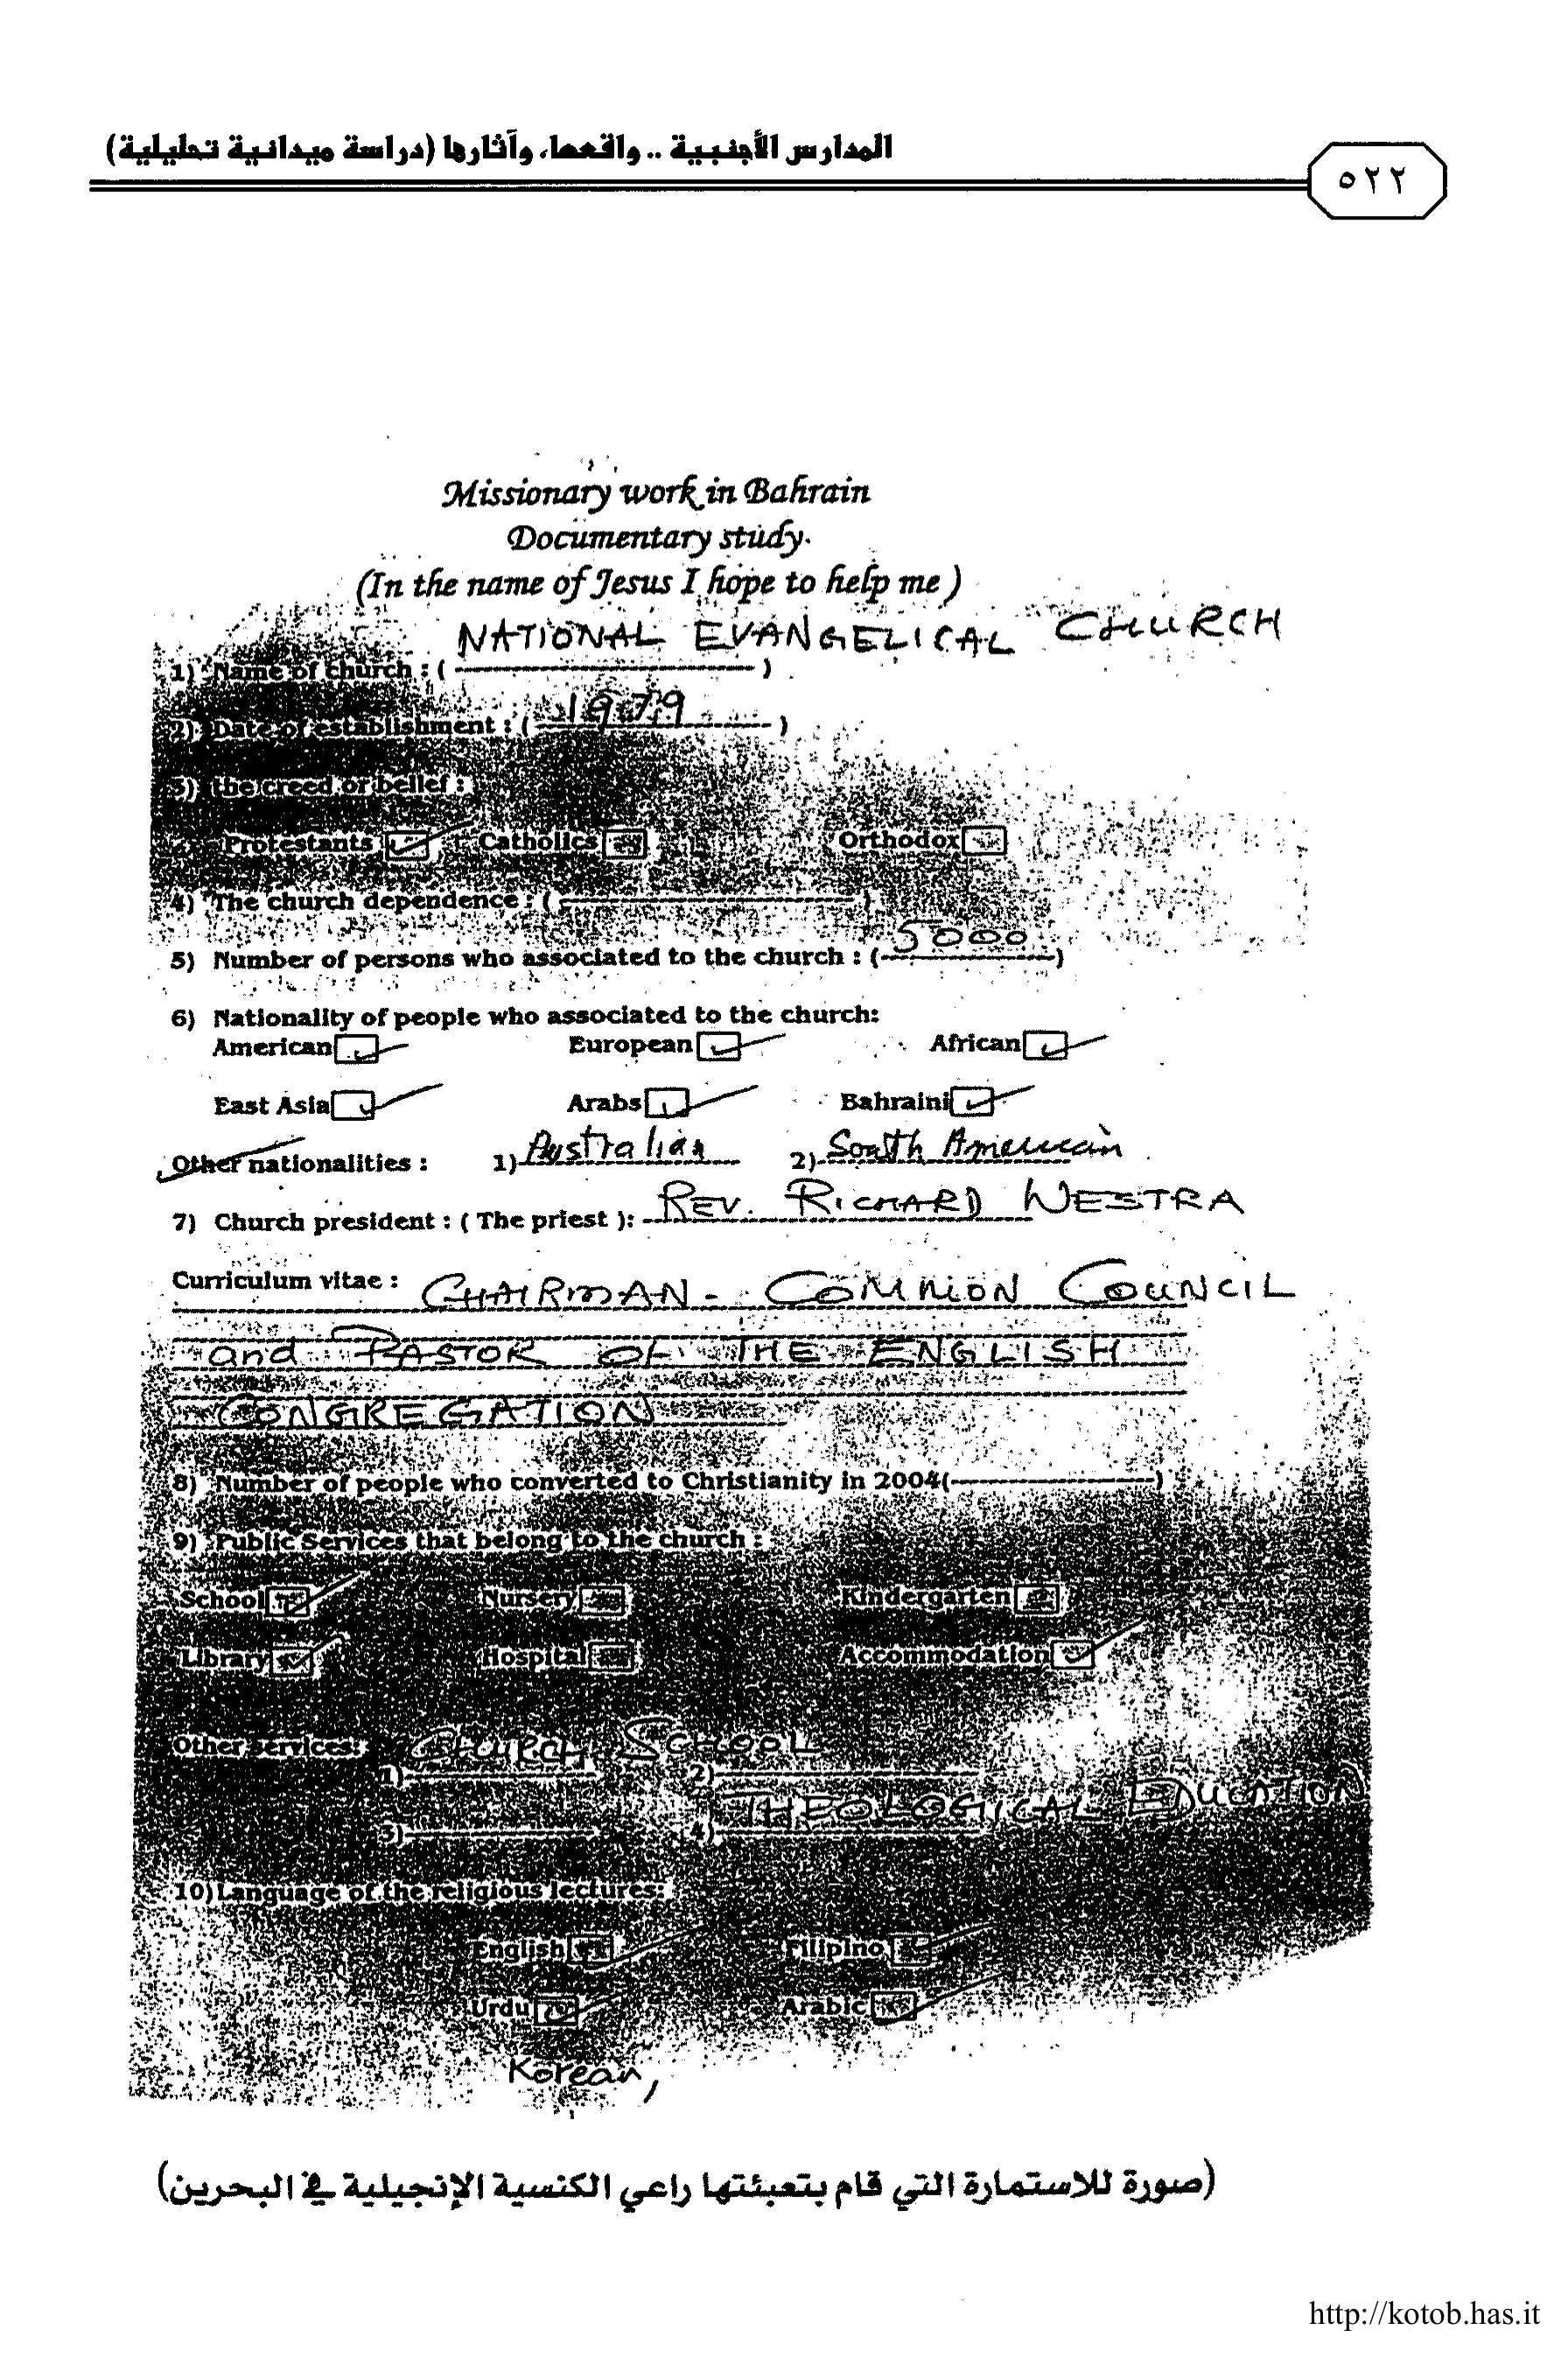 المدارس الأجنبية .. واقعها، وآثارها (دراسة ميدانية تحليلية)
٥٢٢
Missionary work in Bahrain
Documentary study.
(In the name of Jesus I hope to help me )
NATIONAL EVANGELICAL CHURCH
1) Name of church : ( )
2) Date of establishment : ( 1979 )
3) the creed or belief :
Protestants Catholics Orthodox
4) The church dependence : ( )
5) Number of persons who associated to the church : ( 5000 )
6) Nationality of people who associated to the church:
American European African
East Asia Arabs Bahraini
Other nationalities : 1) Australian 2) South American
7) Church president : ( The priest ): REV. RICHARD WESTRA
Curriculum vitae : CHAIRMAN - COMMON COUNCIL
and PASTOR OF THE ENGLISH
CONGREGATION
8) Number of people who converted to Christianity in 2004( )
9) Public Services that belong to the church :
School Nursery Kindergarten
Library Hospital Accommodation
Other services: CHURCH SCHOOL
1) 2)
THEOLOGICAL EDUCATION
3) 4)
10) Language of the religious lectures:
English Filipino
Urdu Arabic
Korean,
(صورة للاستمارة التي قام بتعبئتها راعي الكنسية الإنجيلية في البحرين)
http://kotob.has.it